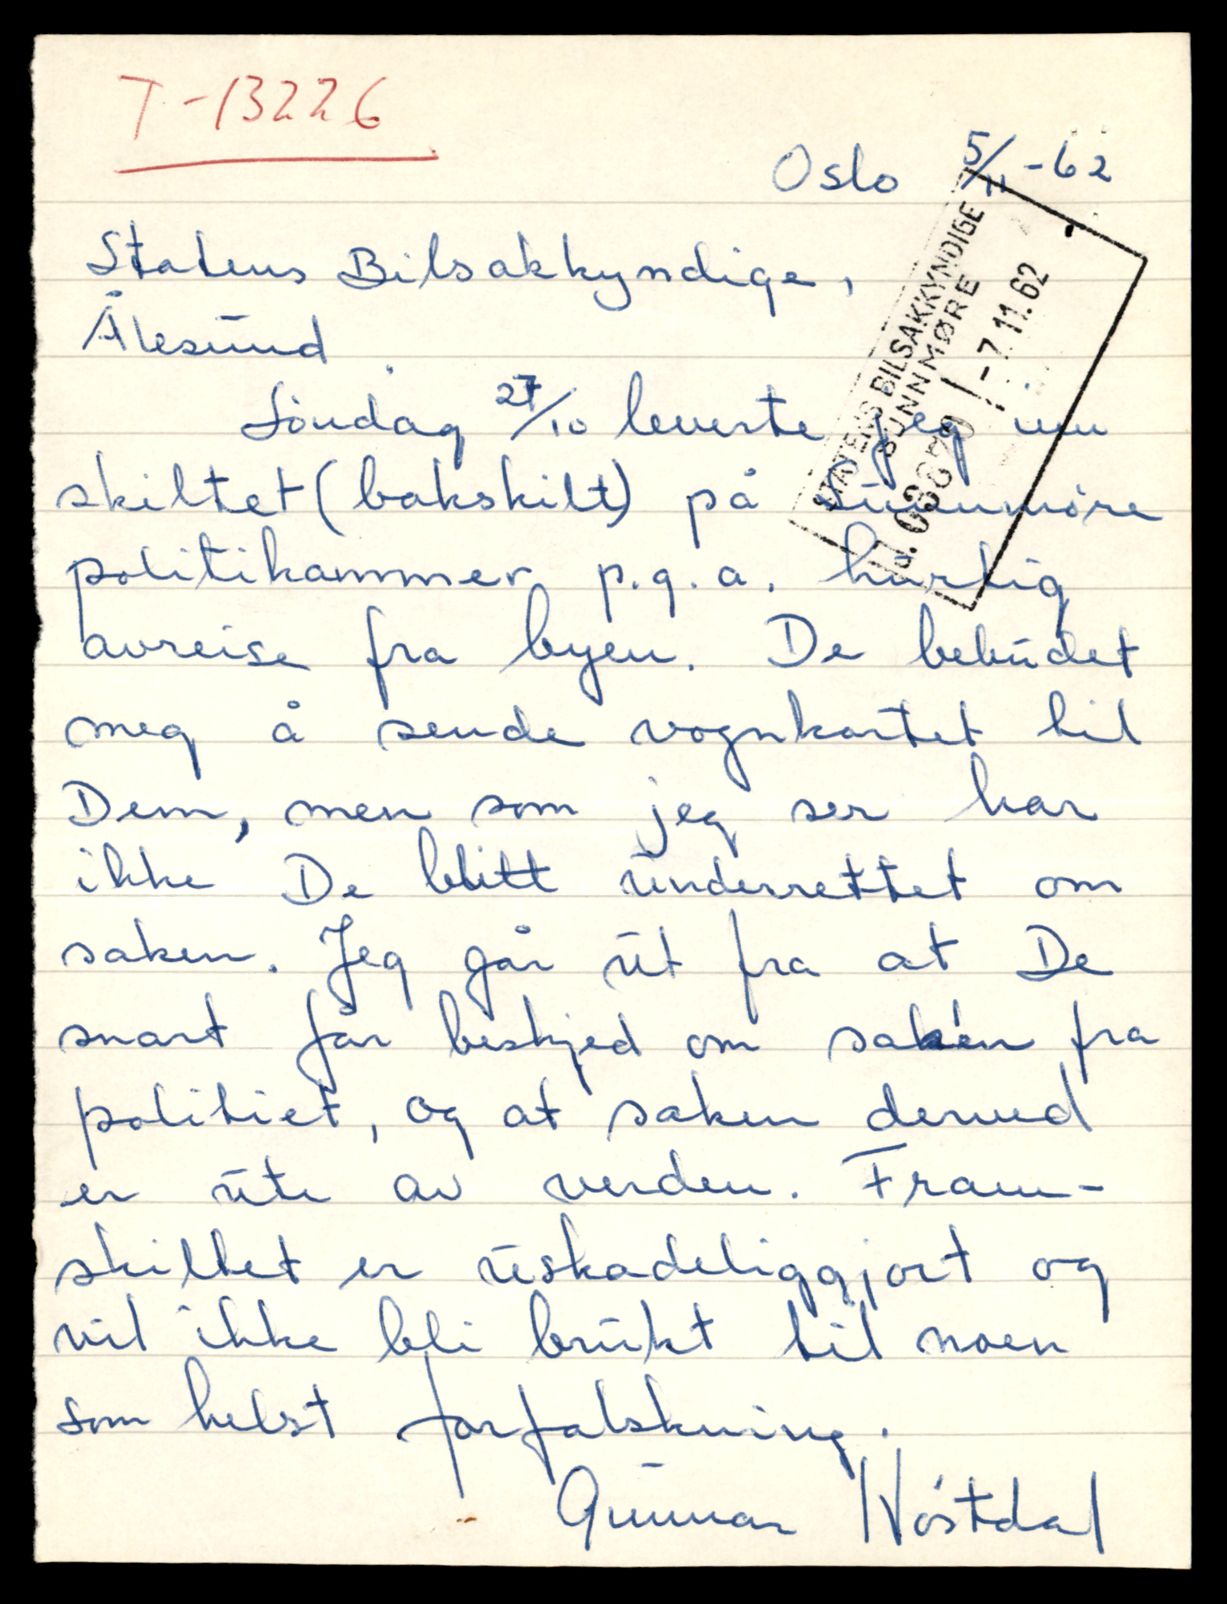 T-13226
Oslo 5/11-62
STATENS BILSAKKYNDIGE
SUNNMØRE
-7.11.62
Statens Bilsakkyndige,
Ålesund
Søndag 27/10 leverte jeg inn
skiltet (bakskilt) på Sunnmøre
politikammer p.g.a. hurtig
avreise fra byen. De bebudet
meg å sende vognkortet til
Dem, men som jeg ser har
ikke De blitt underrettet om
saken. Jeg går ut fra at De
snart får beskjed om saken fra
politiet, og at saken dermed
er ute av verden. Fram-
skiltet er uskadeliggjort og
vil ikke bli brukt til noen
som helst forfalskning.
Gunnar